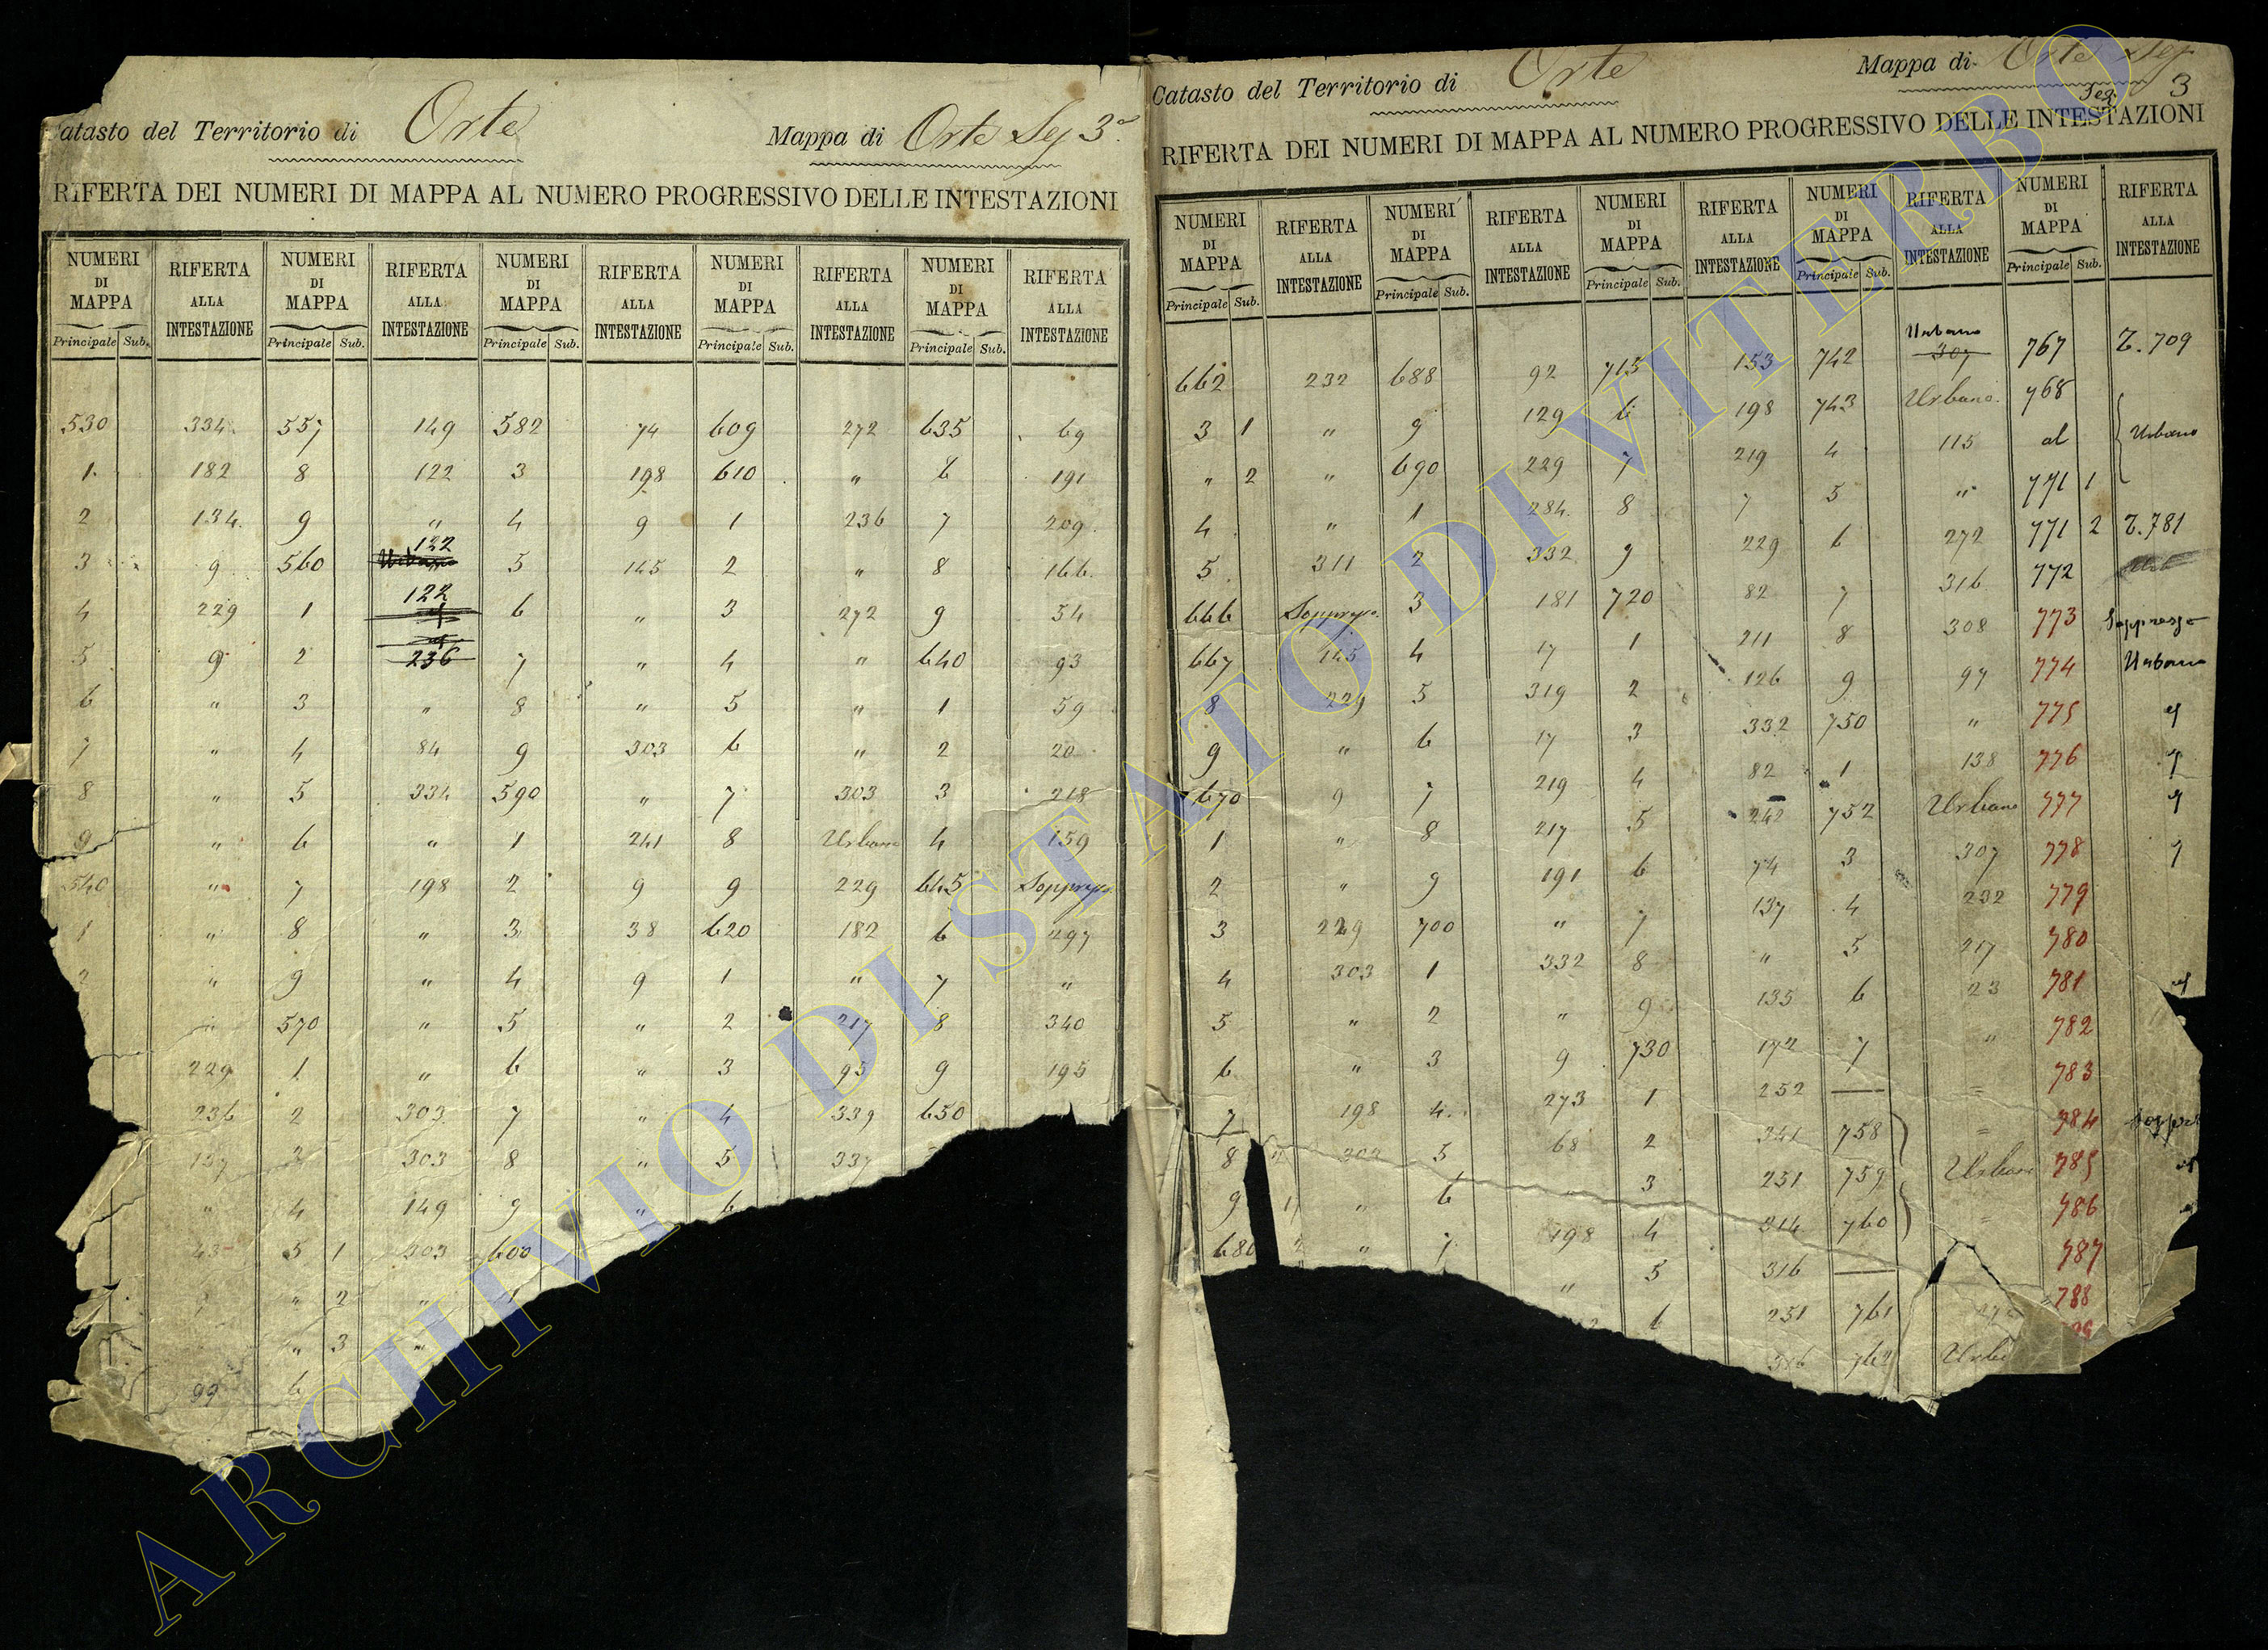 Catasto del Territorio di Orte Mappa di Orte Seg 3ª
RIFERTA DEI NUMERI DI MAPPA AL NUMERO PROGRESSIVO DELLE INTESTAZIONI
NUMERI DI MAPPA RIFERTA ALLA INTESTAZIONE NUMERI DI MAPPA RIFERTA ALLA INTESTAZIONE NUMERI DI MAPPA RIFERTA ALLA INTESTAZIONE NUMERI DI MAPPA RIFERTA ALLA INTESTAZIONE NUMERI DI MAPPA RIFERTA ALLA INTESTAZIONE
Principale Sub. Principale Sub. Principale Sub. Principale Sub. Principale Sub.
530 334 557 149 582 74 609 272 635 69
1 182 8 122 3 198 610 " 6 191
2 134 9 " 4 9 1 236 7 209
3 9 560 122 5 145 2 " 8 166
4 229 1 122 6 " 3 272 9 54
5 9 2 236 7 " 4 " 640 93
6 " 3 " 8 " 5 " 1 59
7 " 4 84 9 303 6 " 2 20
8 " 5 334 590 " 7 303 3 218
9 " 6 " 1 241 8 Urbano 4 159
540 " 7 198 2 9 9 229 645 Soppresso
1 " 8 " 3 38 620 182 6 297
2 " 9 " 4 9 1 " 7 "
" 570 " 5 " 2 217 8 340
229 1 " 6 " 3 95 9 195
236 2 303 7 " 4 339 650
157 3 303 8 " 5 337
" 4 149 9 " 6
43 5 1 303 600
" 2 " 1
" 3 "
99 6
Catasto del Territorio di Orte Mappa di Orte Seg
Seg. 3
RIFERTA DEI NUMERI DI MAPPA AL NUMERO PROGRESSIVO DELLE INTESTAZIONI
NUMERI DI MAPPA RIFERTA ALLA INTESTAZIONE NUMERI DI MAPPA RIFERTA ALLA INTESTAZIONE NUMERI DI MAPPA RIFERTA ALLA INTESTAZIONE NUMERI DI MAPPA RIFERTA ALLA INTESTAZIONE NUMERI DI MAPPA RIFERTA ALLA INTESTAZIONE
Principale Sub. Principale Sub. Principale Sub. Principale Sub. Principale Sub.
662 232 688 92 715 153 742 Urbano 307 767 T. 709
3 1 " 9 129 6 198 743 Urbano 768
" 2 " 690 229 7 219 4 115 al Urbano
4 " 1 284 8 7 5 " 771 1
5 311 2 332 9 229 6 272 771 2 T. 781
666 Soppresso 3 181 720 82 7 316 772
667 145 4 17 1 211 8 308 773 Soppresso
8 229 5 319 2 126 9 97 774 Urbano
9 " 6 17 3 332 750 " 775 "
670 9 7 219 4 82 1 138 776 "
1 " 8 217 5 242 752 Urbano 777 "
2 " 9 191 6 74 3 307 778 "
3 229 700 " 7 137 4 232 779
4 303 1 332 8 " 5 217 780
5 " 2 " 9 135 6 23 781 "
6 " 3 9 730 172 7 " 782
7 198 4 273 1 252 — " 783
8 303 5 68 2 341 758 " 784
9 " 6 " 3 251 759 Urbano 785
680 " 7 198 4 314 760 " 786
" 5 316 — 787
6 251 761 788
316 762
ARCHIVIO DI STATO DI VITERBO